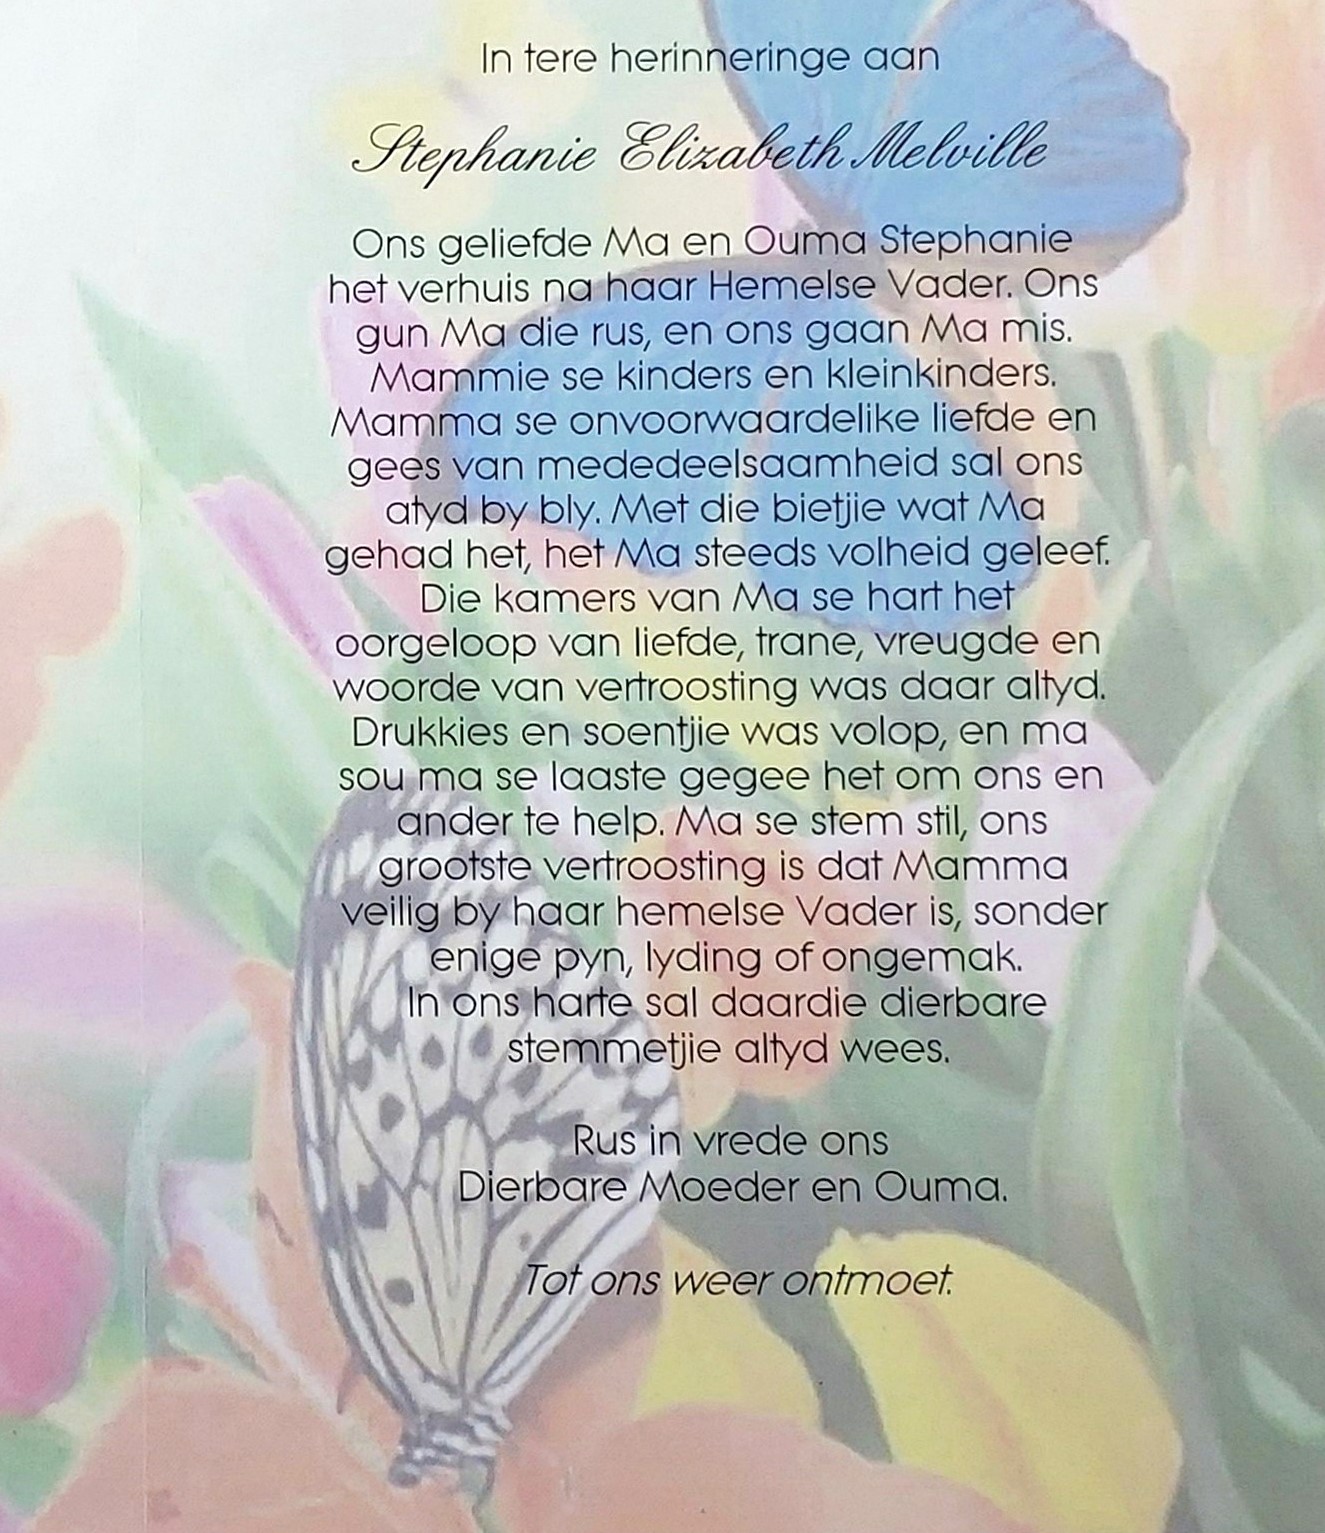 In tere herinneringe aan
Stephanie Elizabeth Melville
Ons geliefde Ma en Ouma Stephanie
het verhuis na haar Hemelse Vader. Ons
gun Ma die rus, en ons gaan Ma mis.
Mammie se kinders en kleinkinders.
Mamma se onvoorwaardelike liefde en
gees van mededeelsaamheid sal ons
atyd by bly. Met die bietjie wat Ma
gehad het, het Ma steeds volheid geleef.
Die kamers van Ma se hart het
oorgeloop van liefde, trane, vreugde en
woorde van vertroosting was daar altyd.
Drukkies en soentjie was volop, en ma
sou ma se laaste gegee het om ons en
ander te help. Ma se stem stil, ons
grootste vertroosting is dat Mamma
veilig by haar hemelse Vader is, sonder
enige pyn, lyding of ongemak.
In ons harte sal daardie dierbare
stemmetjie altyd wees.
Rus in vrede ons
Dierbare Moeder en Ouma.
Tot ons weer ontmoet.